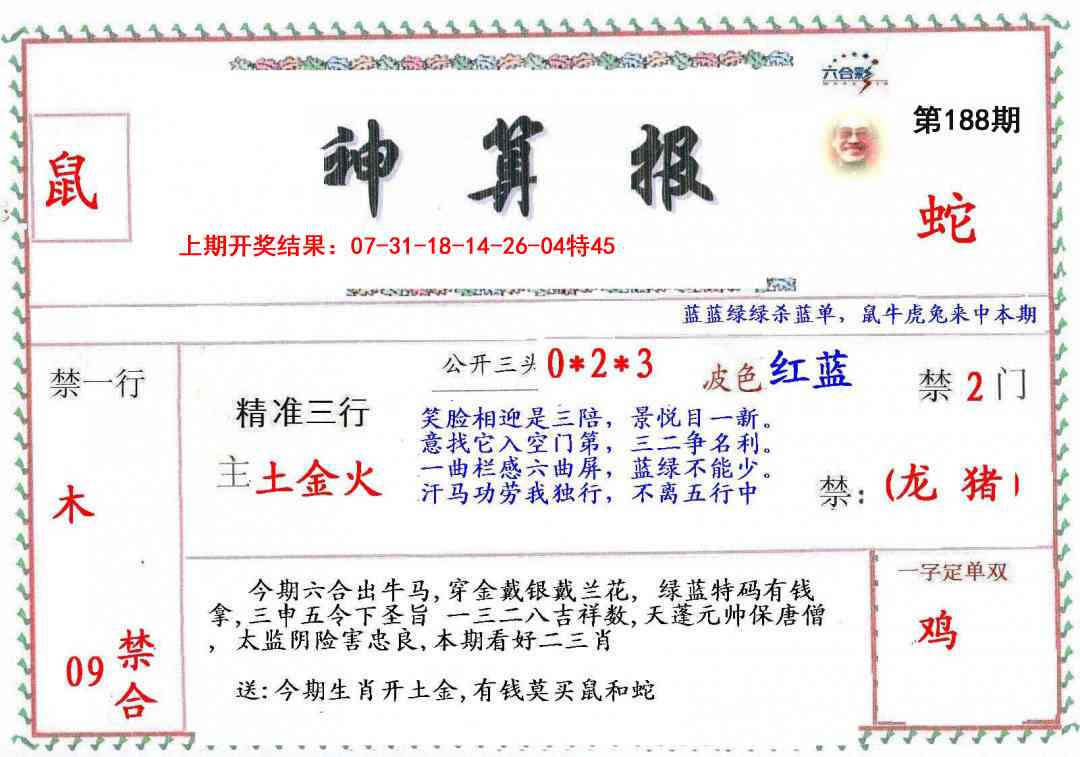 六合彩
第188期
鼠
神算报
蛇
上期开奖结果：07-31-18-14-26-04特45
蓝蓝绿绿杀蓝单，鼠牛虎兔来中本期
禁一行
公开三头 0*2*3
波色 红蓝
禁 2 门
精准三行
笑脸相迎是三陪，景悦目一新。
意找它入空门第，三二争名利。
一曲栏感六曲屏，蓝绿不能少。
汗马功劳我独行，不离五行中
主 土金火
木
禁：(龙 猪)
今期六合出牛马,穿金戴银戴兰花, 绿蓝特码有钱
拿,三申五令下圣旨 一三二八吉祥数,天蓬元帅保唐僧
, 太监阴险害忠良,本期看好二三肖
送:今期生肖开土金,有钱莫买鼠和蛇
一字定单双
鸡
09
禁合